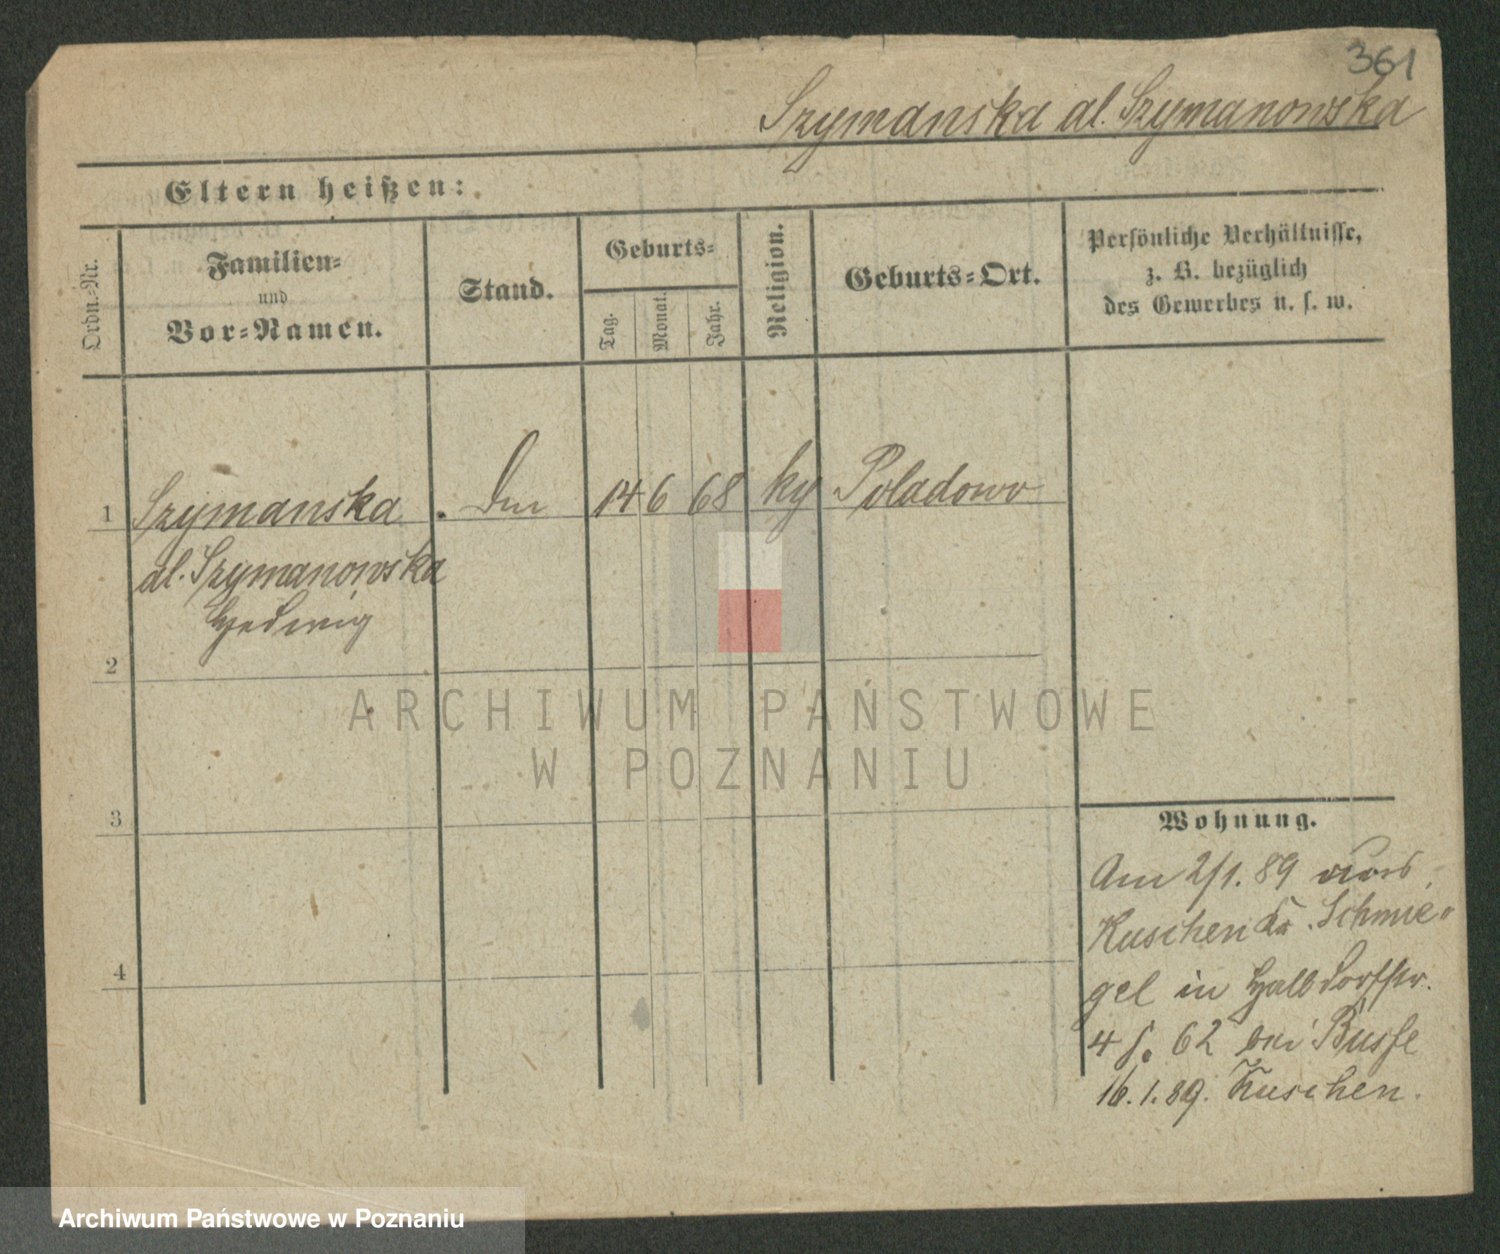 361
Szymanska al. Szymanowska
Eltern heißen:
Ordn.-Nr.
Familien-
und
Vor-Namen.
Stand.
Geburts-
Tag.
Monat.
Jahr.
Religion.
Geburts-Ort.
Persönliche Verhältnisse,
z. B. bezüglich
des Gewerbes u. s. w.
1 Szymanska 14 6 68 Poladowo
al. Szymanowska
Hedwig
2
3
4
Wohnung.
Am 2/1. 89
Kuschen Kr. Schmie-
gel in Halbdorfstr.
4 S. 62 bei Busse
16.1.89. Kuschen.
ARCHIWUM PAŃSTWOWE
W POZNANIU
Archiwum Państwowe w Poznaniu